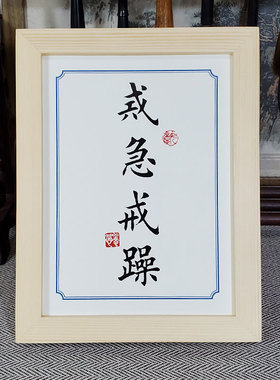 戒急戒躁